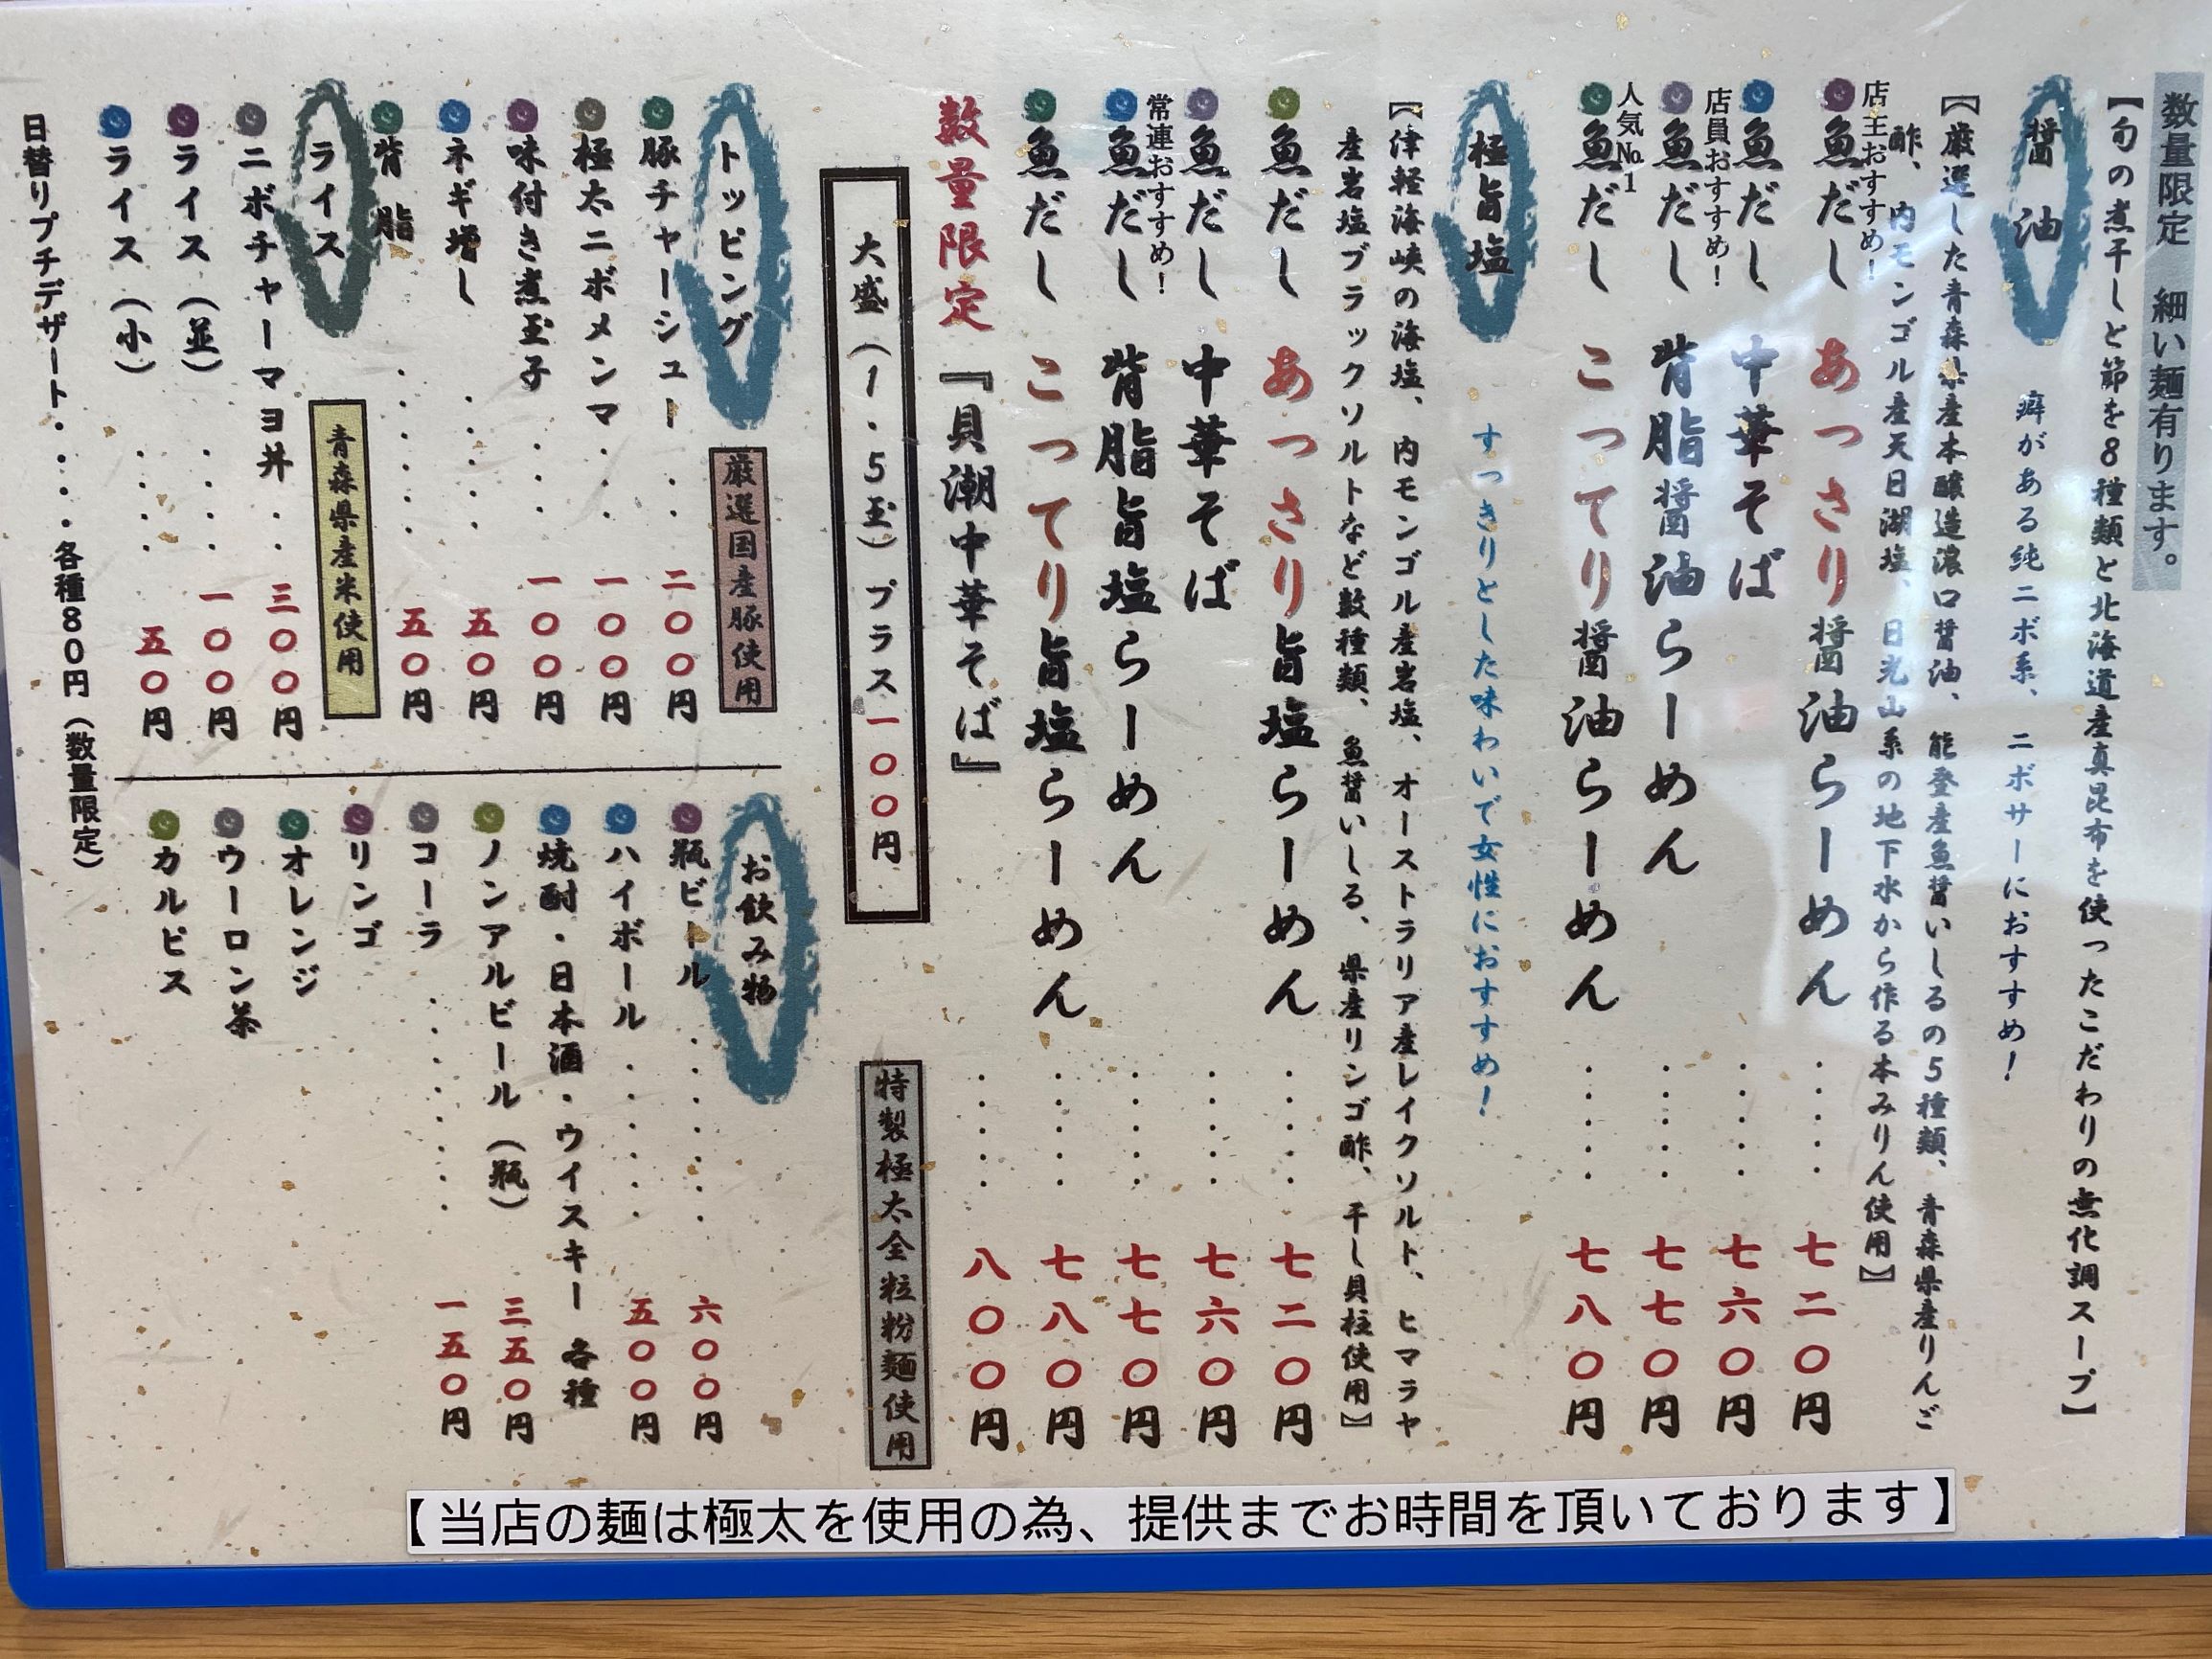 数量限定 細い麺有ります。
【旬の煮干しと節を8種類と北海道産真昆布を使ったこだわりの無化調スープ】
醤油
癖がある純ニボ系、ニボサーにおすすめ！
【厳選した青森県産本醸造濃口醤油、能登産魚醤いしるの5種類、青森県産りんご
酢、内モンゴル産天日湖塩、日光山系の地下水から作る本みりん使用】
店主おすすめ！
魚だし あっさり醤油らーめん ・・・・・ 七二〇円
魚だし 中華そば ・・・・・ 七六〇円
店員おすすめ！
魚だし 背脂醤油らーめん ・・・・・ 七七〇円
人気№1
魚だし こってり醤油らーめん ・・・・・ 七八〇円
極旨塩
すっきりとした味わいで女性におすすめ！
【津軽海峡の海塩、内モンゴル産岩塩、オーストラリア産レイクソルト、ヒマラヤ
産岩塩ブラックソルトなど数種類、魚醤いしる、県産リンゴ酢、干し貝柱使用】
魚だし あっさり旨塩らーめん ・・・・・ 七二〇円
魚だし 中華そば ・・・・・ 七六〇円
常連おすすめ！
魚だし 背脂旨塩らーめん ・・・・・ 七七〇円
魚だし こってり旨塩らーめん ・・・・・ 七八〇円
数量限定『貝潮中華そば』 ・・・・・ 八〇〇円
大盛（1.5玉）プラス一〇〇円
特製極太全粒粉麺使用
トッピング
厳選国産豚使用
豚チャーシュー ・・ 二〇〇円
極太ニボメンマ ・・・ 一〇〇円
味付き煮玉子 ・・・ 一〇〇円
ネギ増し ・・・・・ 五〇円
背脂 ・・・・・・ 五〇円
ライス
青森県産米使用
ニボチャーマヨ丼 ・・ 三〇〇円
ライス（並） ・・・・ 一〇〇円
ライス（小） ・・・・ 五〇円
日替りプチデザート・・・・・各種80円（数量限定）
お飲み物
瓶ビール ・・・・・・・ 六〇〇円
ハイボール ・・・・・・ 五〇〇円
焼酎・日本酒・ウイスキー 各種
ノンアルビール（瓶） 三五〇円
コーラ ・・・・・・・・ 一五〇円
リンゴ
オレンジ
ウーロン茶
カルピス
【当店の麺は極太を使用の為、提供までお時間を頂いております】